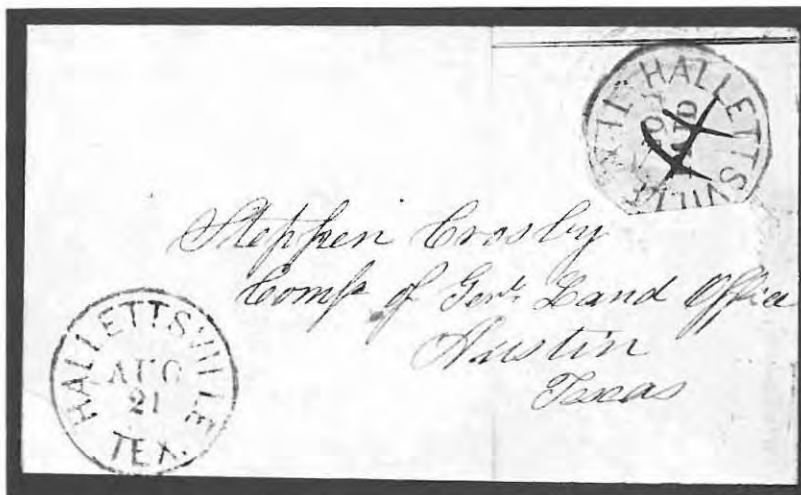 HALLETTSVILLE
PAID
Stephen Crosby
Comr of Genl Land Office
Austin
Texas
HALLETTSVILLE
AUG
21
TEX.